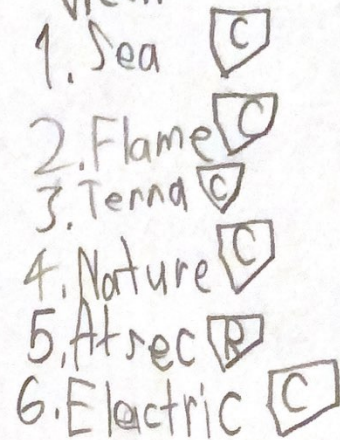 1. Sea C
2. Flame C
3. Terra C
4. Nature C
5. Atsec R
6. Electric C